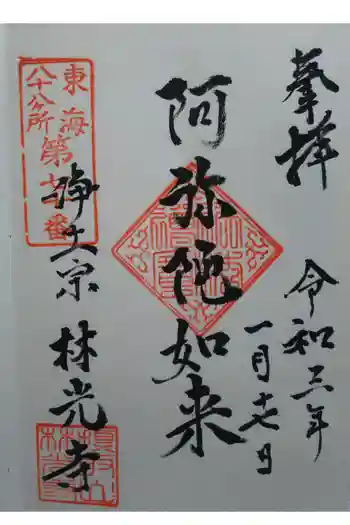 奉拝
令和三年
一月十七日
阿弥陀如来
東海
八十八ヶ所
第
番
浄土宗 林光寺